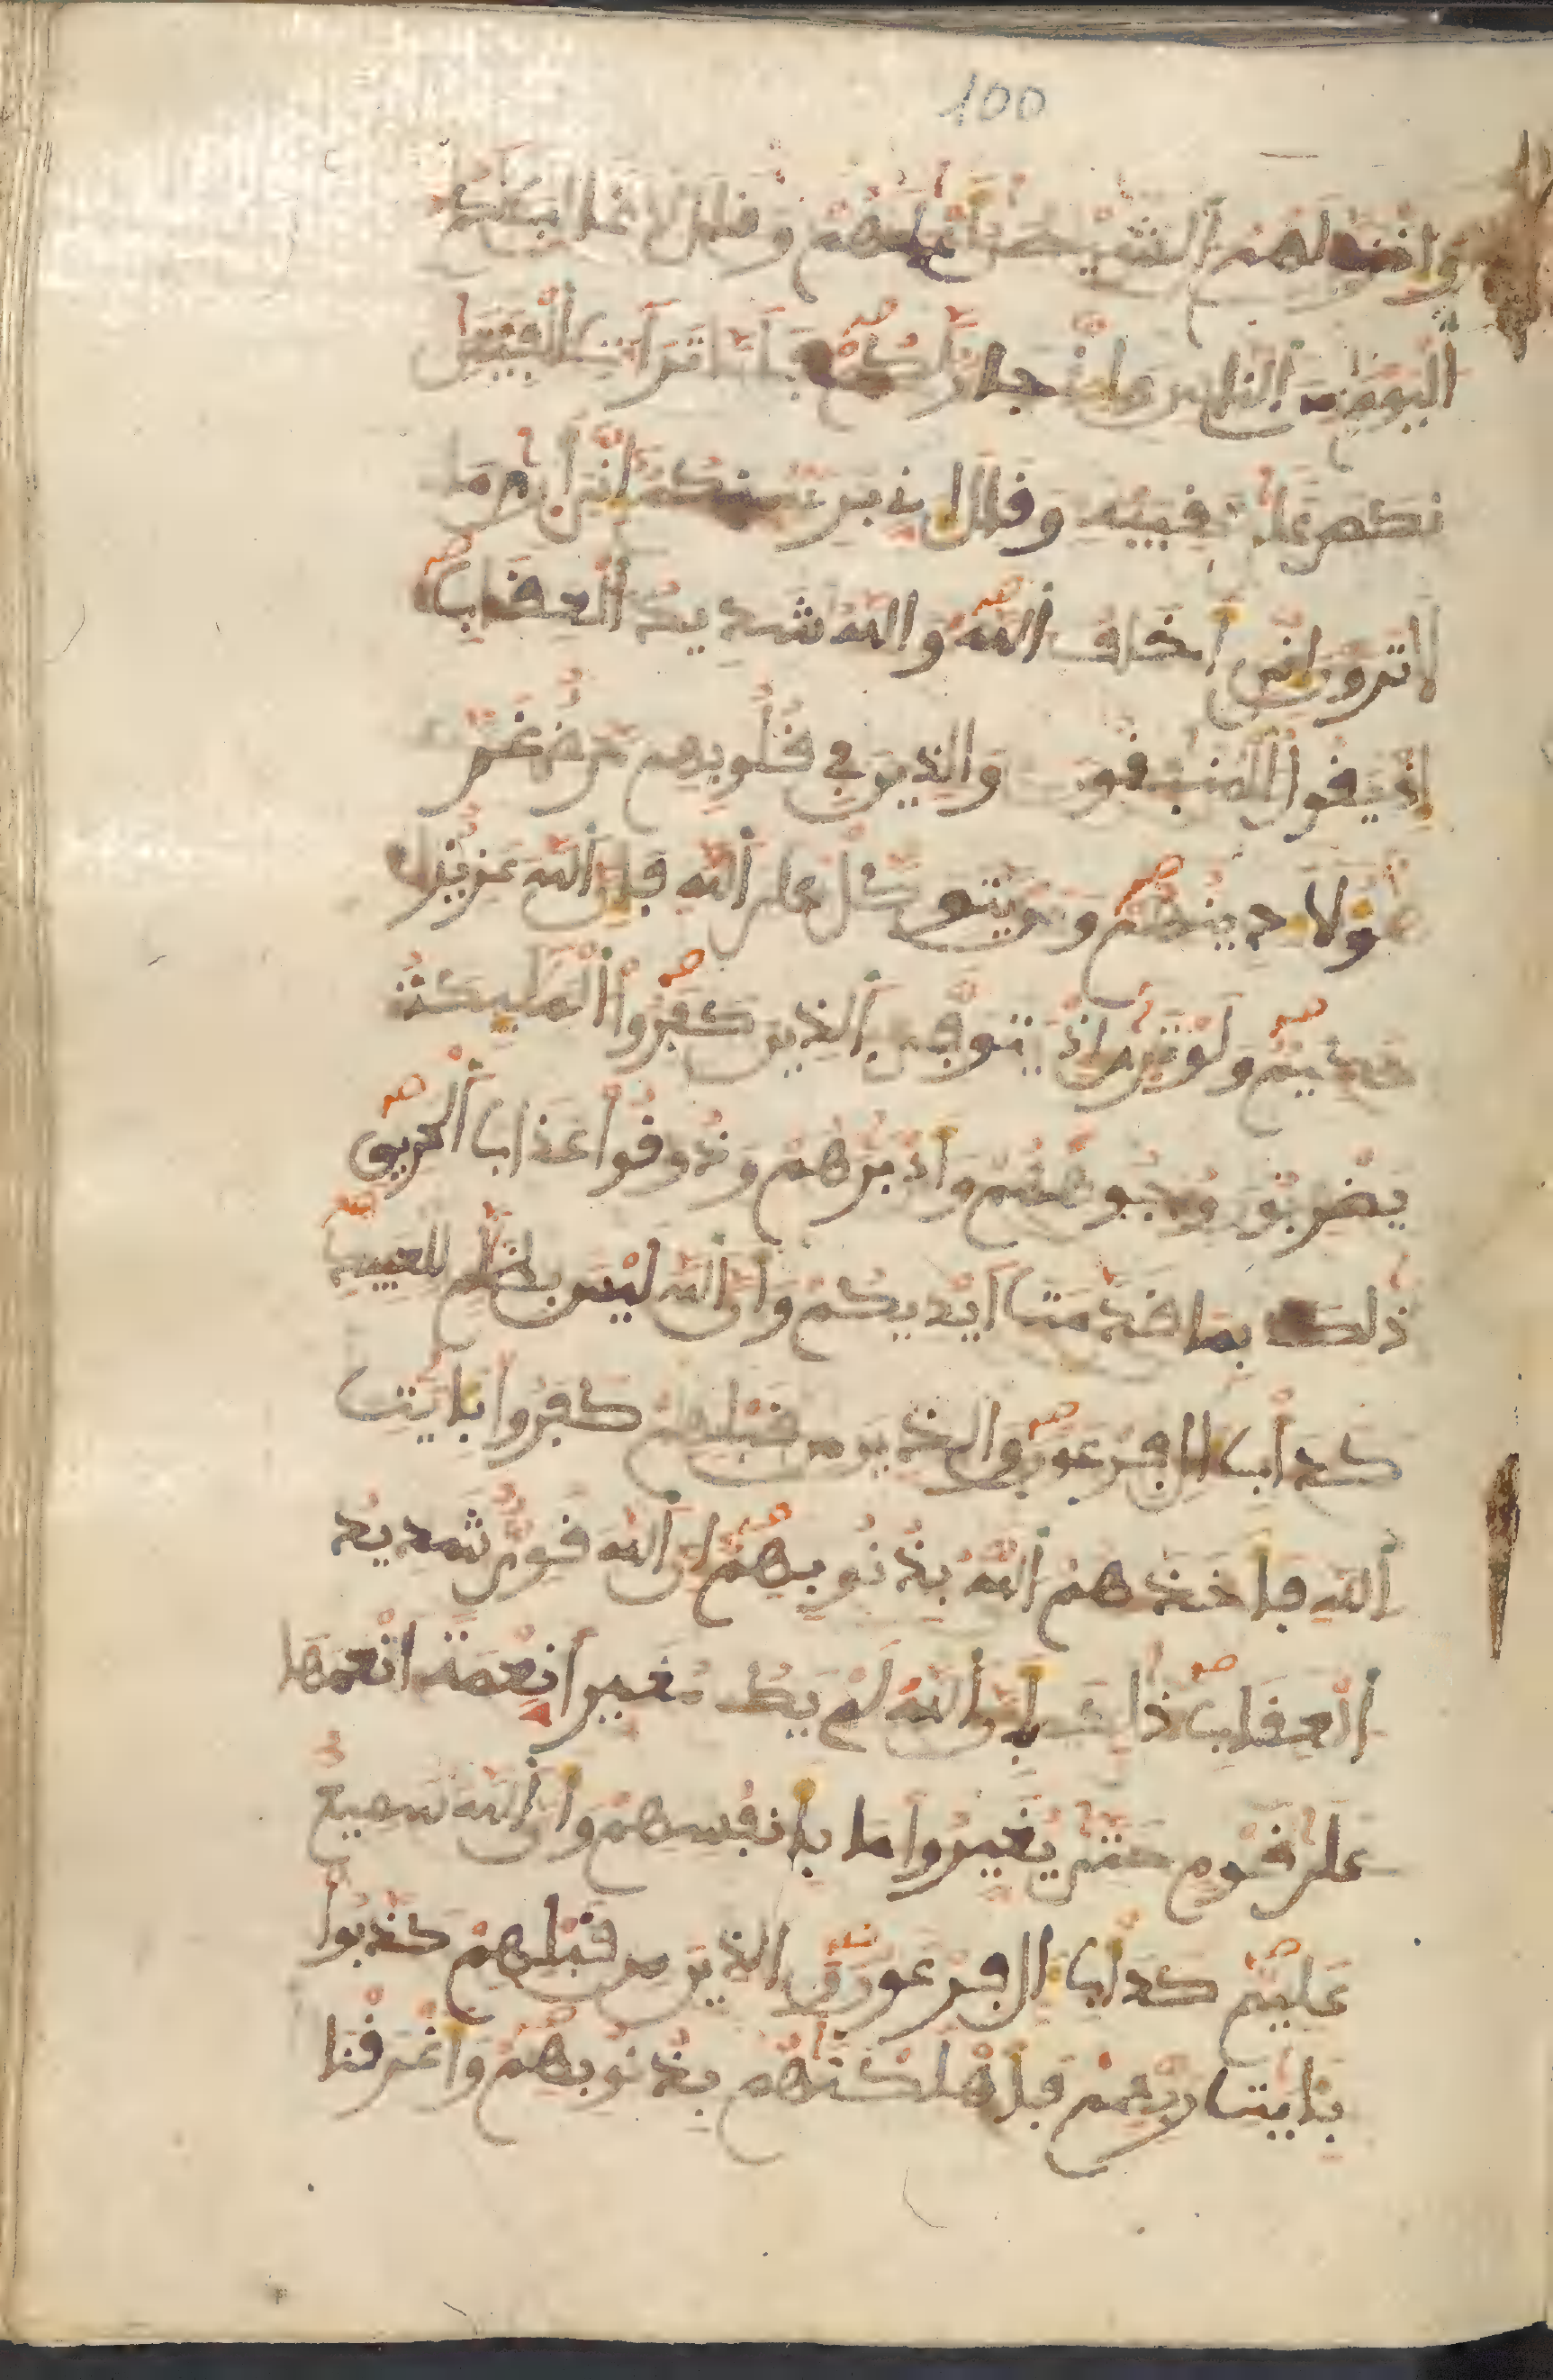 100
وَإِذْ زَيَّنَ لَهُمُ الشَّيْطَٰنُ أَعْمَٰلَهُمْ وَقَالَ لَا غَالِبَ لَكُمُ
اَ۬لْيَوْمَ مِنَ اَ۬لنَّاسِ وَإِنِّے جَارٌ لَّكُمْ فَلَمَّا تَرَآءَتِ اِ۬لْفِئَتَٰنِ
نَكَصَ عَلَىٰ عَقِبَيْهِ وَقَالَ إِنِّے بَرِےٓءٌ مِّنكُمُ إِنِّيَ أَرَىٰ مَا
لَا تَرَوْنَ إِنِّيَ أَخَافُ اُ۬للَّهَ وَاللَّهُ شَدِيدُ اُ۬لْعِقَابِ
إِذْ يَقُولُ اُ۬لْمُنَٰفِقُونَ وَالَّذِينَ فِے قُلُوبِهِم مَّرَضٌ غَرَّ
هَٰٓؤُلَآءِ دِينُهُمْ وَمَنْ يَّتَوَكَّلْ عَلَى اَ۬للَّهِ فَإِنَّ اَ۬للَّهَ عَزِيزٌ
حَكِيمٌ وَلَوْ تَرَىٰٓ إِذْ يَتَوَفَّى اَ۬لَّذِينَ كَفَرُواْ اُ۬لْمَلَٰٓئِكَةُ
يَضْرِبُونَ وُجُوهَهُمْ وَأَدْبَٰرَهُمْ وَذُوقُواْ عَذَابَ اَ۬لْحَرِيقِ
ذَٰلِكَ بِمَا قَدَّمَتَ اَيْدِيكُمْ وَأَنَّ اَ۬للَّهَ لَيْسَ بِظَلَّٰمٍ لِّلْعَبِيدِ
كَدَأْبِ ءَالِ فِرْعَوْنَ وَالَّذِينَ مِن قَبْلِهِمْ كَفَرُواْ بِـَٔايَٰتِ
اِ۬للَّهِ فَأَخَذَهُمُ اُ۬للَّهُ بِذُنُوبِهِمُ إِنَّ اَ۬للَّهَ قَوِيٌّ شَدِيدُ
اُ۬لْعِقَابِ ذَٰلِكَ بِأَنَّ اَ۬للَّهَ لَمْ يَكُ مُغَيِّراً نِّعْمَةً اَنْعَمَهَا
عَلَىٰ قَوْمٍ حَتَّىٰ يُغَيِّرُواْ مَا بِأَنفُسِهِمْ وَأَنَّ اَ۬للَّهَ سَمِيعٌ
عَلِيمٌ كَدَأْبِ ءَالِ فِرْعَوْنَ وَالَّذِينَ مِن قَبْلِهِمْ كَذَّبُواْ
بِـَٔايَٰتِ رَبِّهِمْ فَأَهْلَكْنَٰهُم بِذُنُوبِهِمْ وَأَغْرَقْنَا